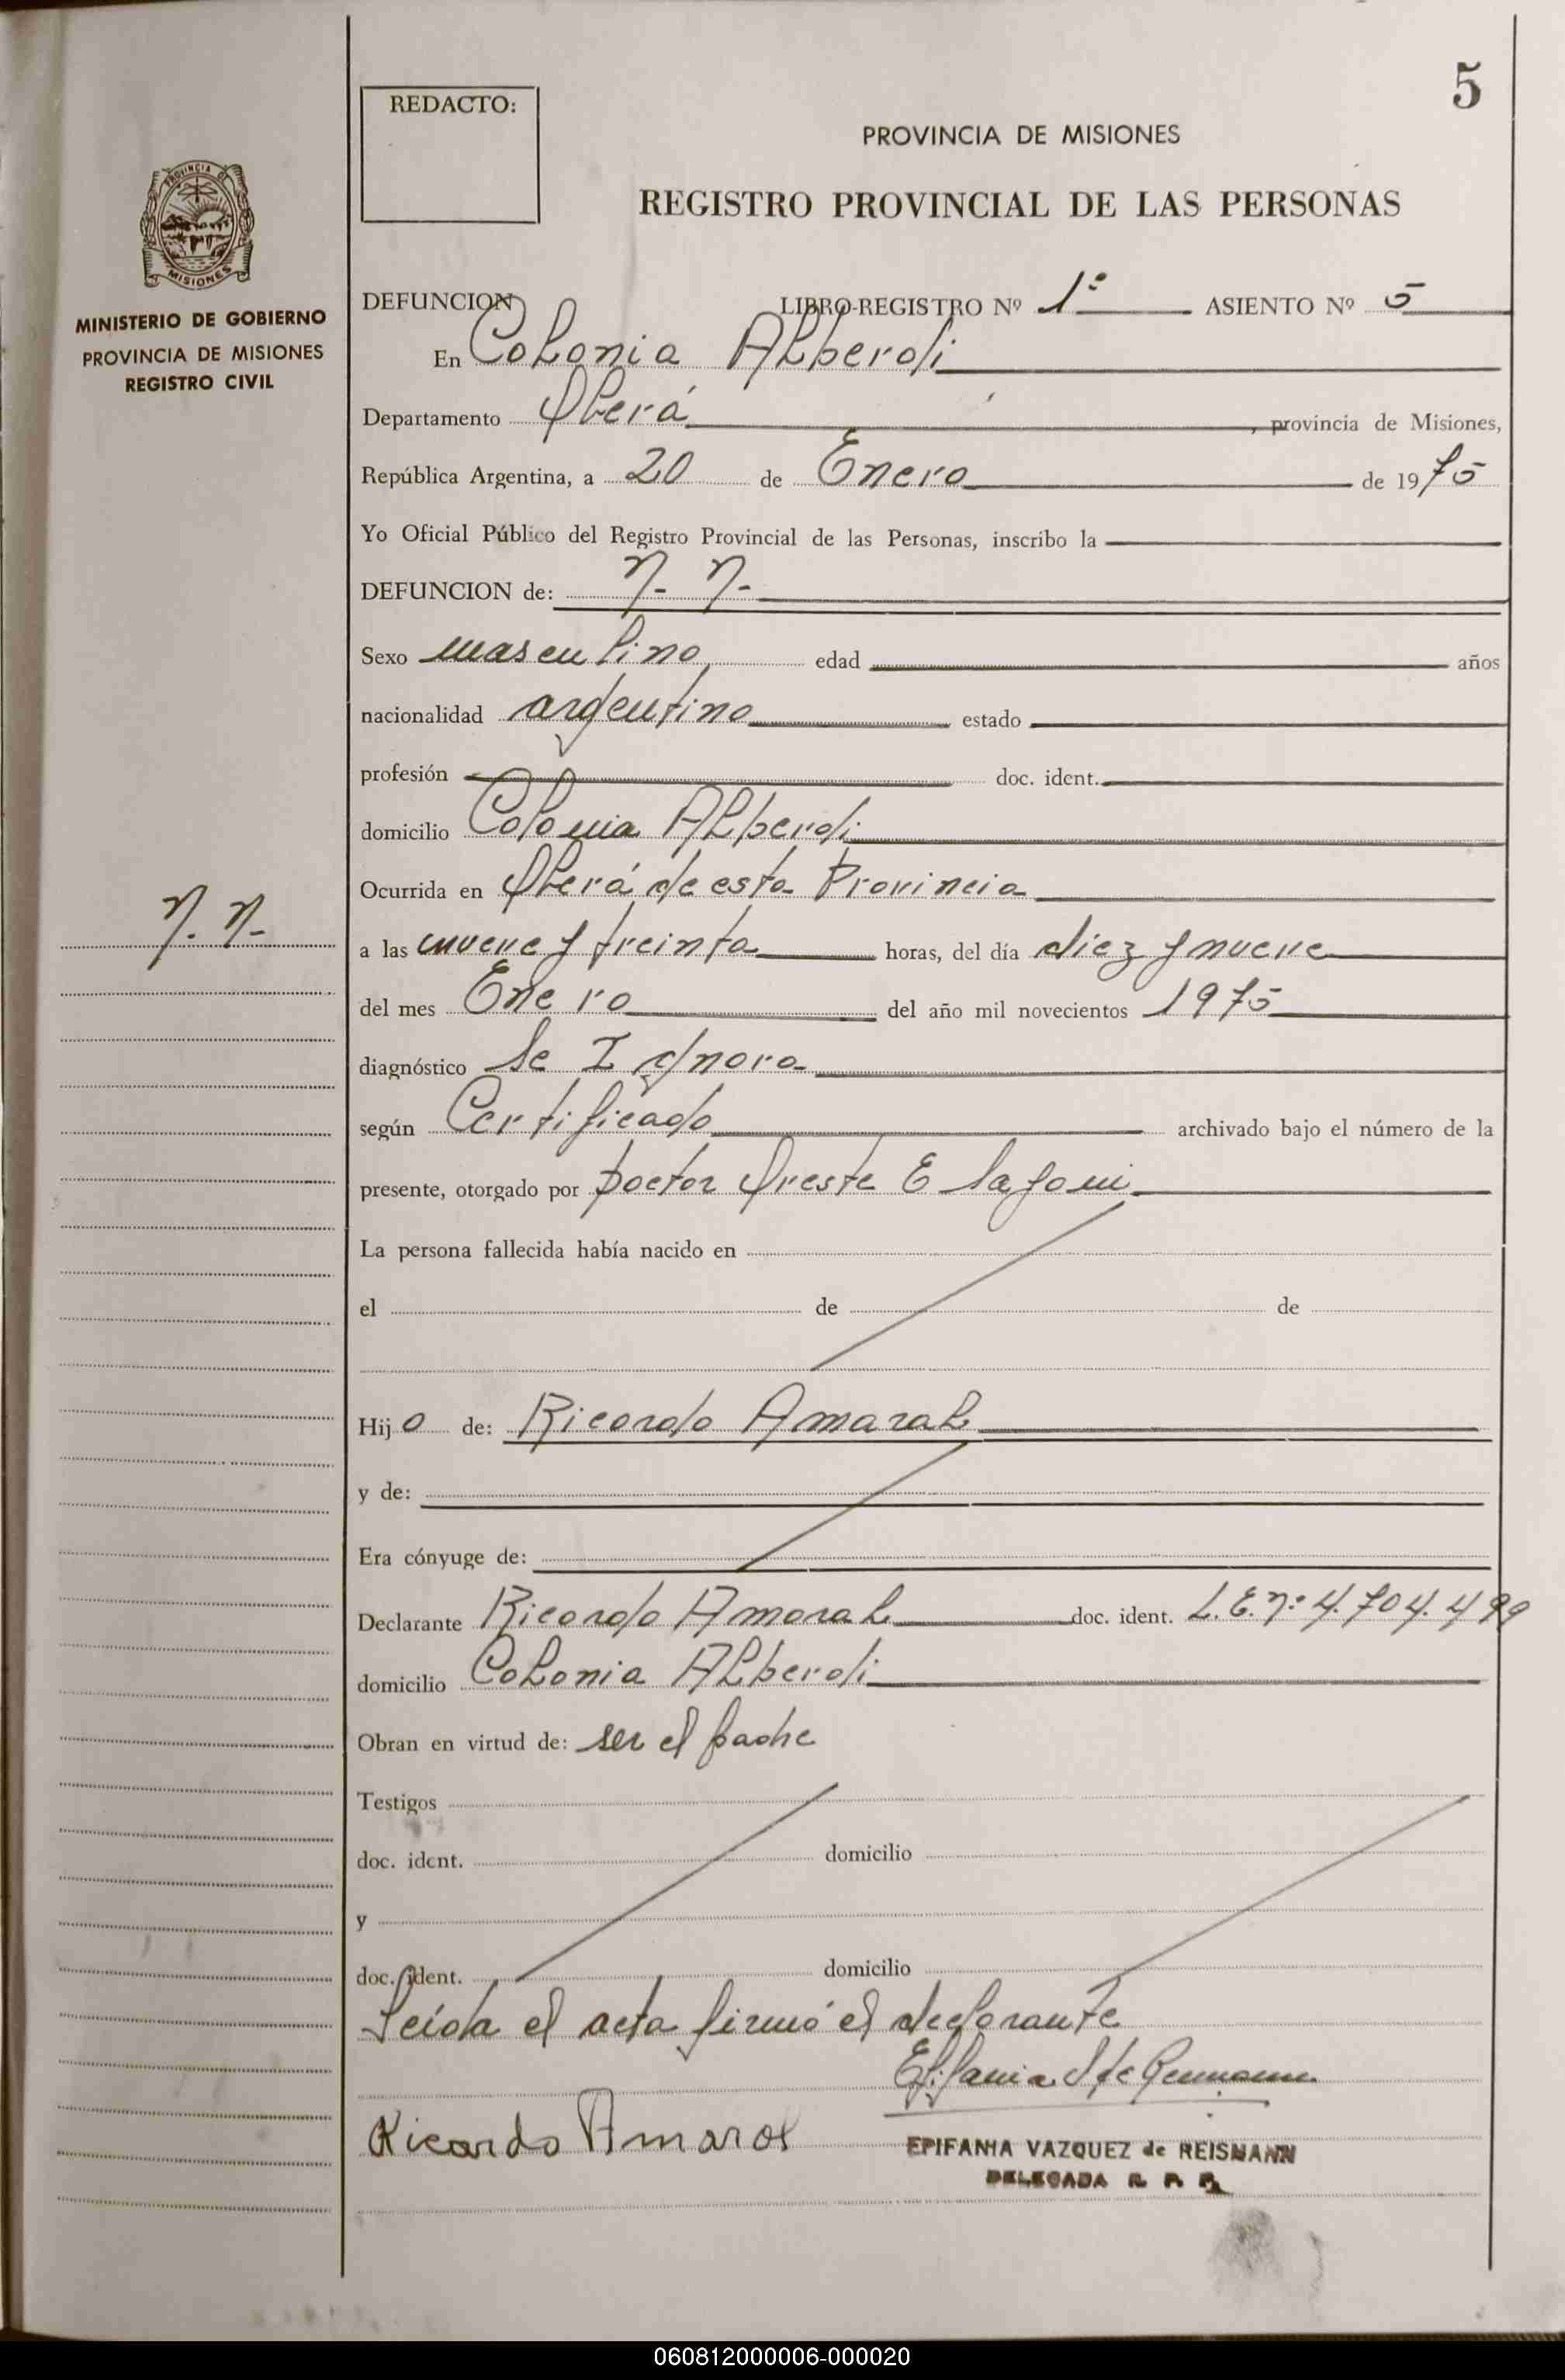 5
REDACTO:
PROVINCIA DE MISIONES
REGISTRO PROVINCIAL DE LAS PERSONAS
PROVINCIA DE
MISIONES
MINISTERIO DE GOBIERNO
PROVINCIA DE MISIONES
REGISTRO CIVIL
DEFUNCION LIBRO-REGISTRO Nº 1º ASIENTO Nº 5
En Colonia Alberdi
Departamento Oberá, provincia de Misiones,
República Argentina, a 20 de Enero de 1975
Yo Oficial Público del Registro Provincial de las Personas, inscribo la
DEFUNCION de: N. N.
Sexo masculino edad años
nacionalidad argentino estado
profesión doc. ident.
domicilio Colonia Alberdi
Ocurrida en Oberá de esta Provincia
N. N.
a las nueve y treinta horas, del día diez y nueve
del mes Enero del año mil novecientos 1975
diagnóstico Se Ignora
según Certificado archivado bajo el número de la
presente, otorgado por Doctor Oreste E
La persona fallecida había nacido en
el de de
Hijo de: Ricardo Amaral
y de:
Era cónyuge de:
Declarante Ricardo Amaral doc. ident. L.E.Nº 4.704.499
domicilio Colonia Alberdi
Obran en virtud de: ser el padre
Testigos
doc. ident. domicilio
y
doc. ident. domicilio
Leída el acta firmó el declarante
Epifania
Ricardo Amaral
EPIFANIA VAZQUEZ de REISMANN
DELEGADA R. P. P.
060812000006-000020